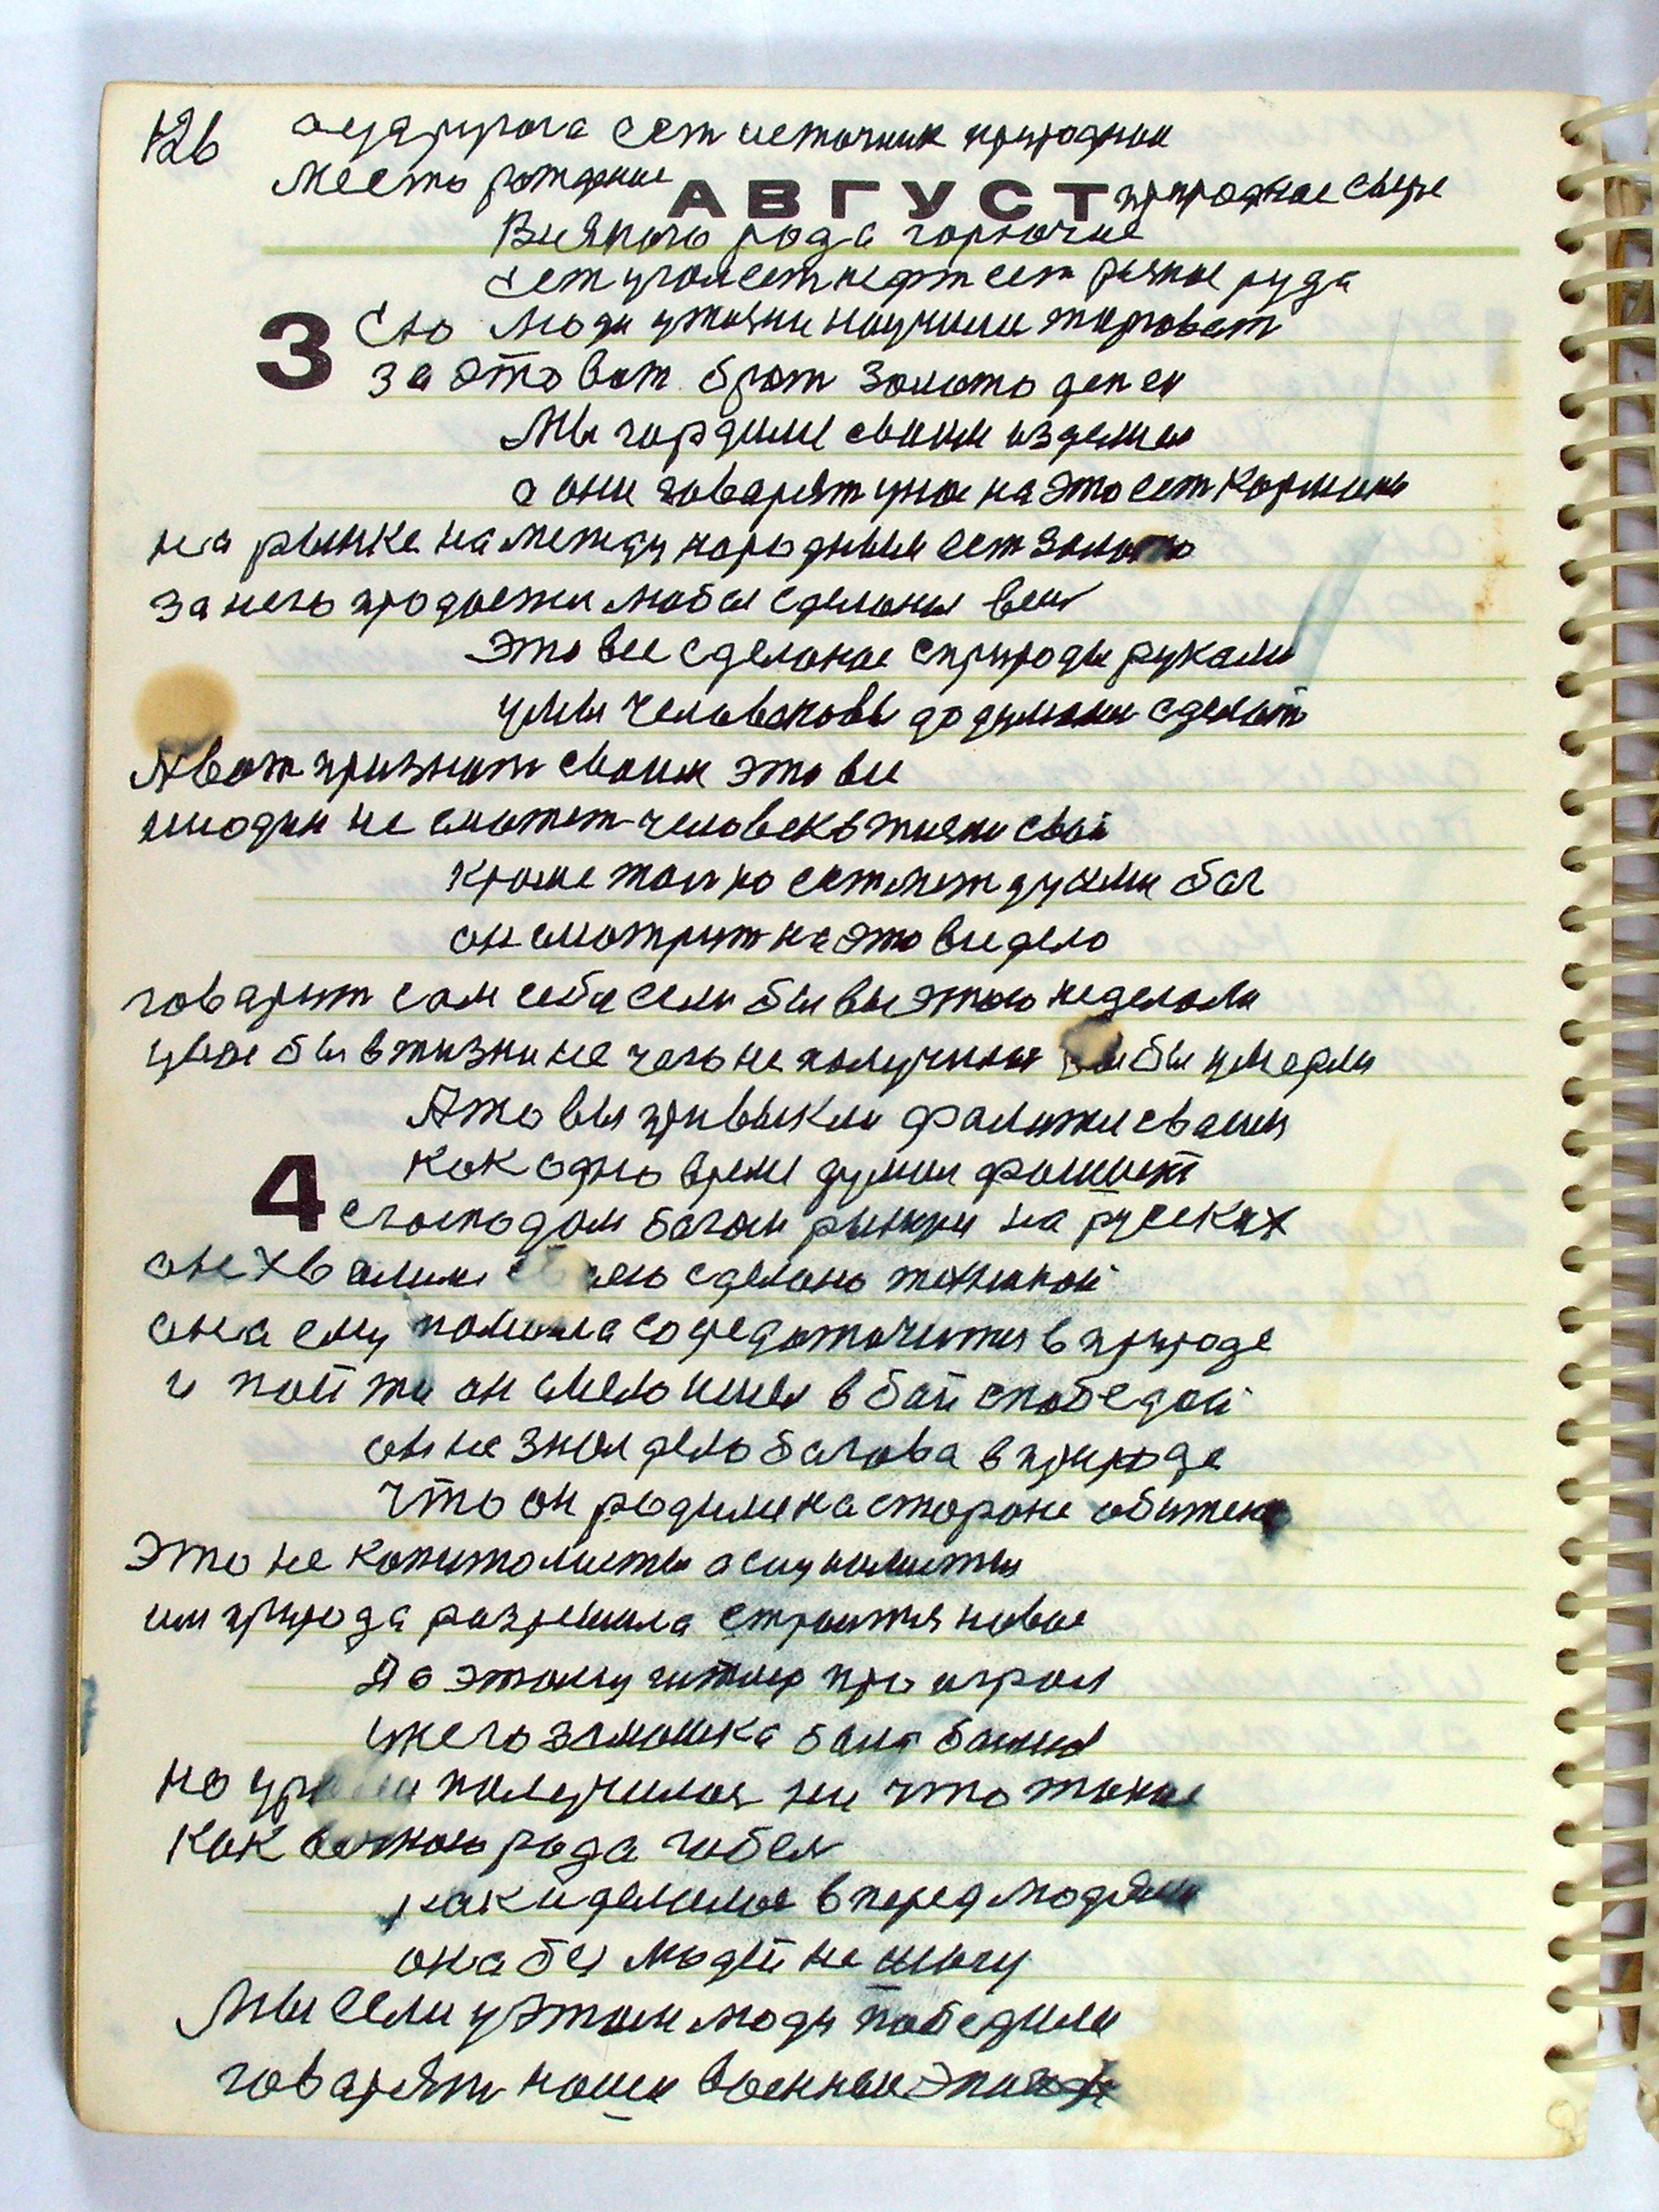 126
а удругога ест источник природнии
Место рождение природное сыре
АВГУСТ
Всякого рода горючие
ест угол ест нефт ест разные руда
3 Ею люди у жизни научили торговат
за это вот брат золото денги
Мы гордили своим изделия
а они говарят у нас на это ест
на рынке на между народным ест золото
за него продаетси любые сделоные вещ
это все сделоное с природы руками
умы человековы додумали сделат
А вот признат своим это все
ни один не сможет человек в жизни свои
кроме толко ест между ими бог
он смотрит на это все дело
говарит сам себе если бы вы этого не делали
у вас бы в жизни не чего не получили бы умерли
А то вы привыкли фалитси своим
как одно время думал фашист
4 с господом богом ринули на руских
он хвалили сделано техникой
она ему помогла сосредоточитя в природе
и пойти он смело шел в бой с победой
он не знал дело богова в природе
что он родилси на стороне обижен
Это не капитолисты а сицналисты
им природа разрешила строится новое
По этому гитлер проиграл
уж его замашка была
но получилос ни что такое
как рода гибел
как и делалос в перед людями
она без людей не шагу
Мы если у этом люди победили
говарят наши военные